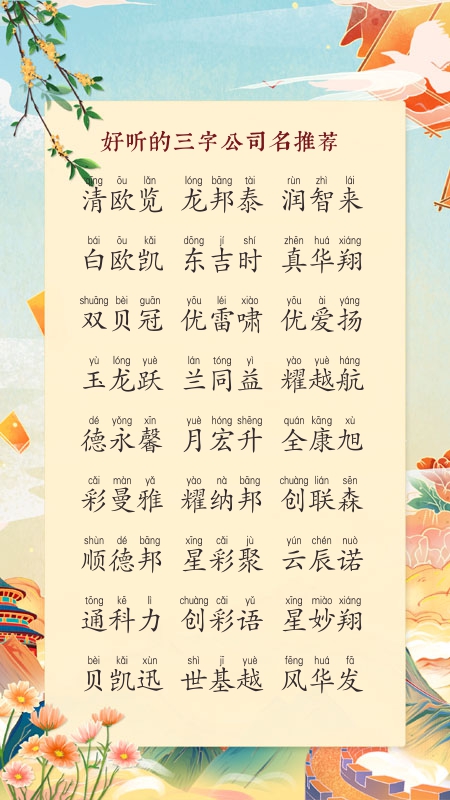 好听的三字公司名推荐
qīng ōu lǎn lóng bāng tài rùn zhì lái
清欧览 龙邦泰 润智来
bái ōu kǎi dōng jí shí zhēn huá xiáng
白欧凯 东吉时 真华翔
shuāng bèi guān yōu léi xiào yōu ài yáng
双贝冠 优雷啸 优爱扬
yù lóng yuè lán tóng yì yào yuè háng
玉龙跃 兰同益 耀越航
dé yǒng xīn yuè hóng shēng quán kāng xù
德永馨 月宏升 全康旭
cǎi màn yǎ yào nà bāng chuàng lián sēn
彩曼雅 耀纳邦 创联森
shùn dé bāng xīng cǎi jù yún chén nuò
顺德邦 星彩聚 云辰诺
tōng kē lì chuàng cǎi yǔ xīng miào xiáng
通科力 创彩语 星妙翔
bèi kǎi xùn shì jī yuè fēng huá fā
贝凯迅 世基越 风华发